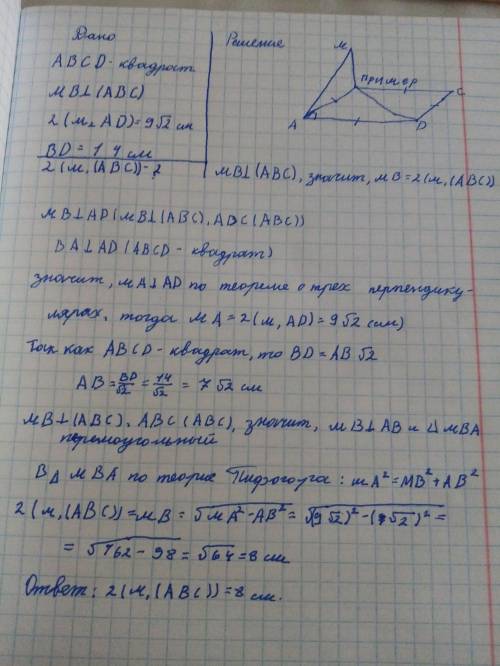 Дано
ABCD - квадрат
MB⊥(ABC)
2(м, AD)=9√2 см
BD = 14 см
2(м,(ABC))-?
Решение
M
пример
C
A
D
MB⊥(ABC), значит, MB=2(м,(ABC))
MB⊥AD(MB⊥(ABC), ADC(ABC))
BA⊥AD (ABCD - квадрат)
значит, MA⊥AD по теореме о трех перпендику-
лярах, тогда MA=2(м, AD)=9√2 (см)
Так как ABCD - квадрат, то BD=AB√2
AB=BD/√2=14/√2=7√2 см
MB⊥(ABC), ABC(ABC), значит, MB⊥AB и △MBA
прямоугольный
В△ MBA по теории Пифогора: MA²=MB²+AB²
2(м,(ABC))=MB=√MA²-AB²=√(9√2)²-(7√2)²=
=√162-98=√64=8 см
Ответ: 2(м,(ABC))=8 см.